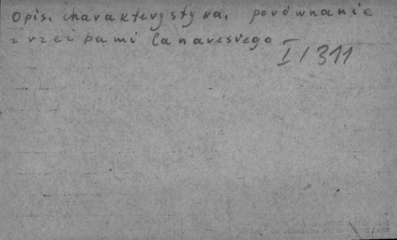 Opis, charakterystyka, porównanie
z rzeźbami Canovesvego
I/311